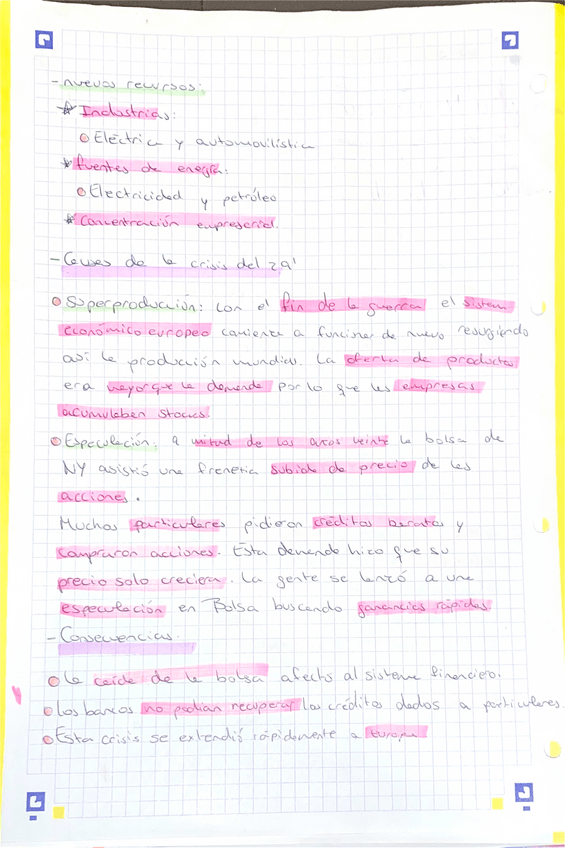 - nuevos recursos:
* Industrias:
Eléctrica y automovilística
* fuentes de energía:
Electricidad y petróleo
* Concentración empresarial.
- Causes de la crisis del 29'
Superproducción: con el fin de la guerra el sistema
económico europeo comienza a funcionar de nuevo resurgiendo
así la producción mundial. La oferta de productos
era mayor que la demanda por lo que las empresas
acumulaban stocks
Especulación: a mitad de los años veinte la bolsa de
NY asistió una frenetia subida de precio de las
acciones.
Muchos particulares pidieron créditos baratos y
compraron acciones. Esta demanda hizo que su
precio solo creciera. La gente se lanzó a una
especulación en Bolsa buscando ganancias rápidas
- Consecuencias.
La caída de la bolsa afectó al sistema financiero.
Los bancos no podían recuperar los créditos dados a particulares.
Esta crisis se extendió rápidamente a Europa